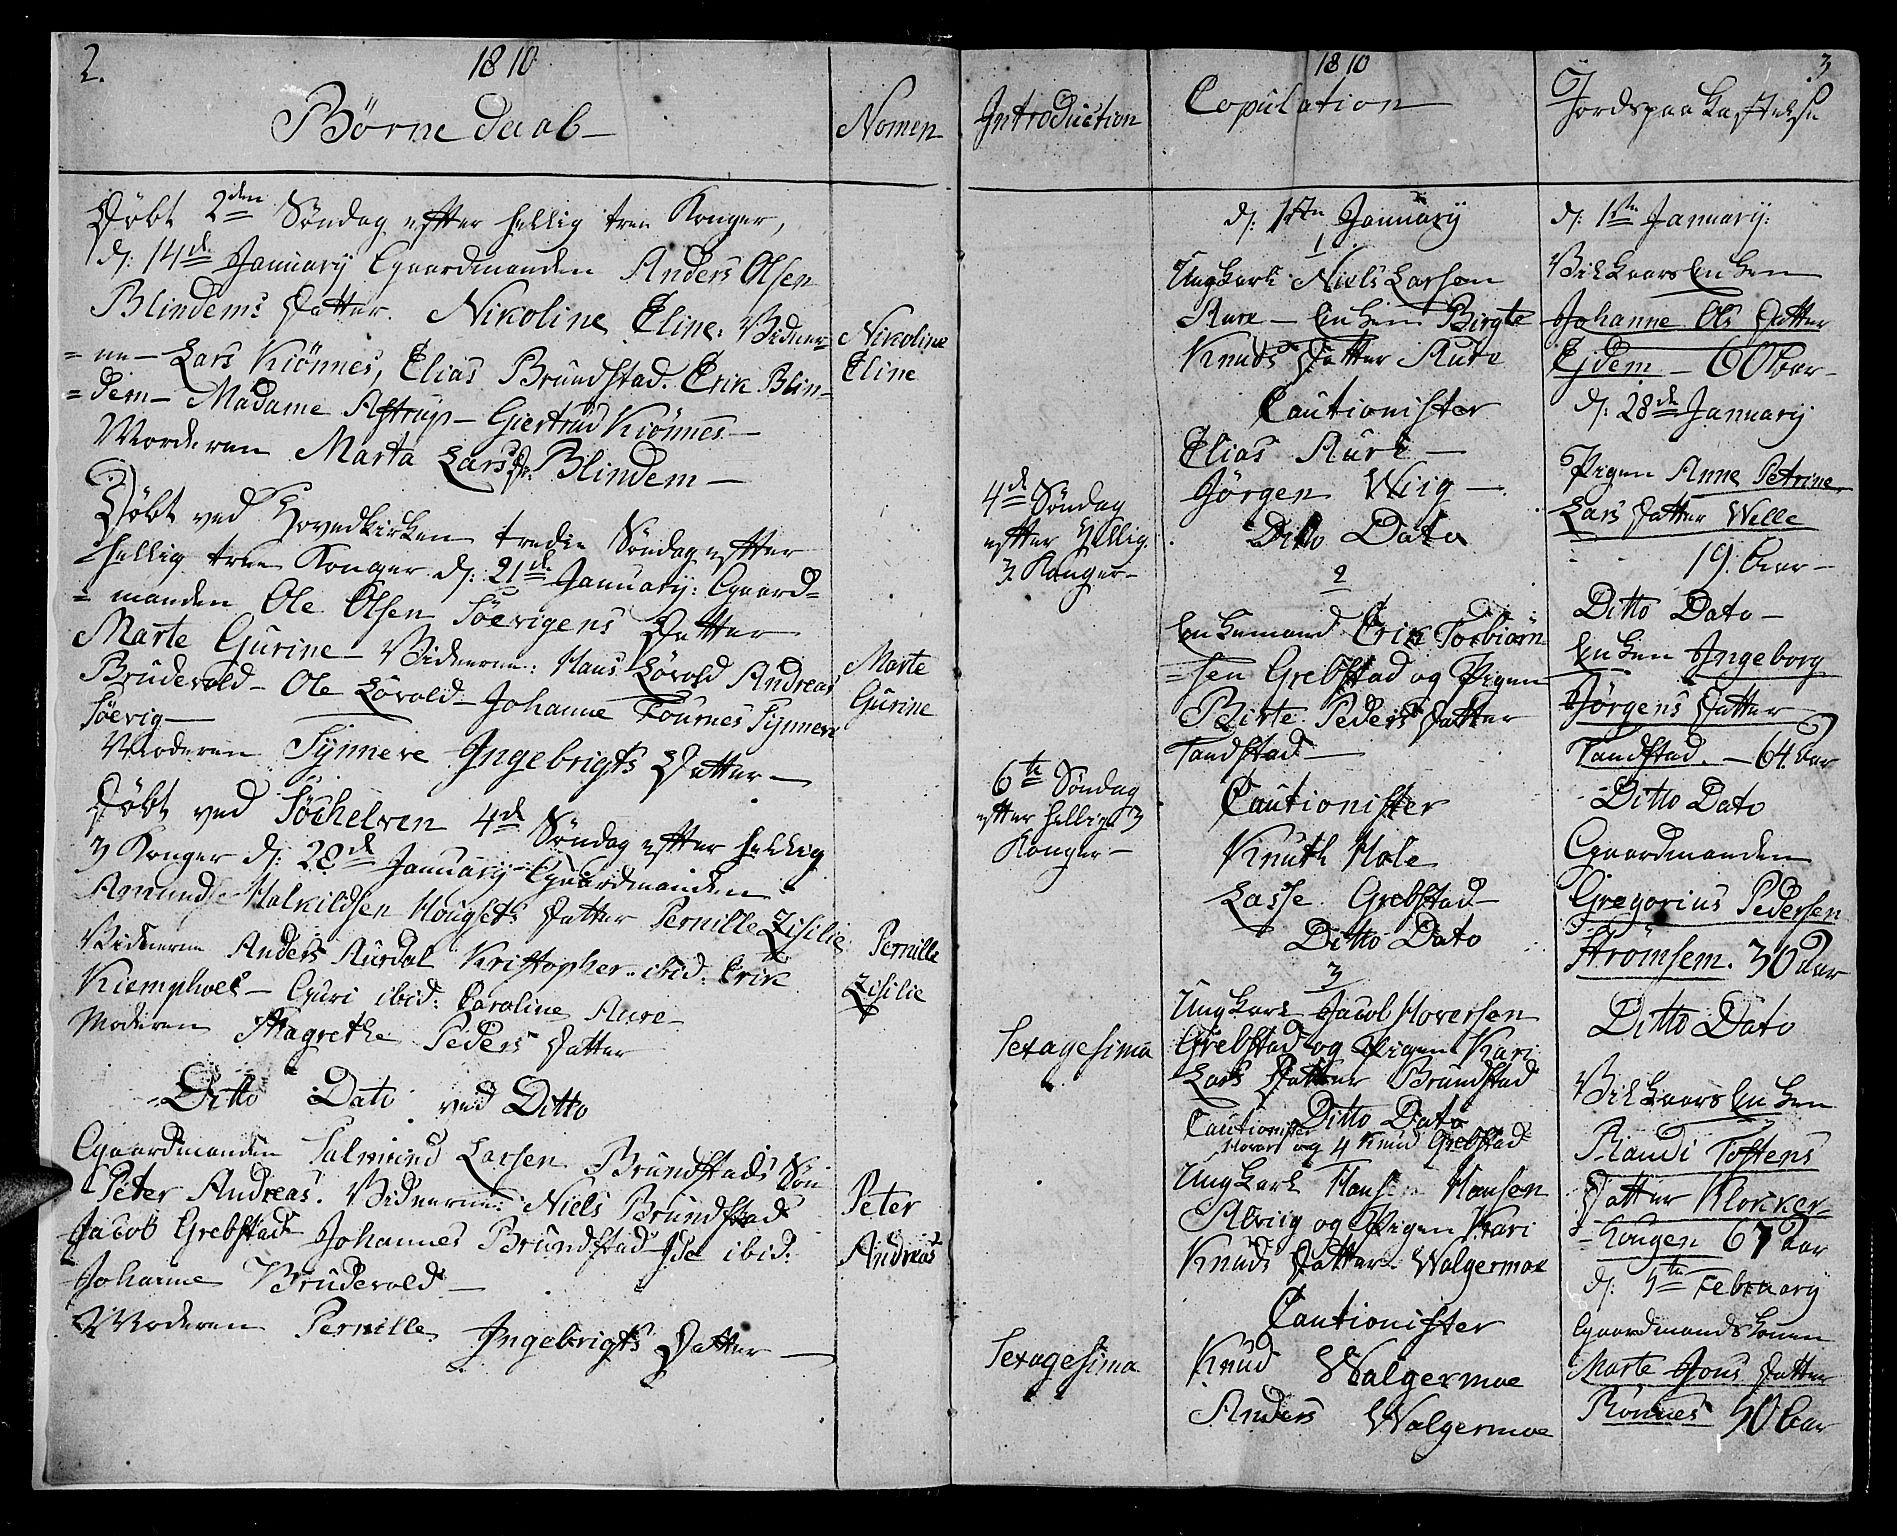 2.
1810
Børne daab
Nomen
Døbt 2den Søndag efter hellig tre Konger,
d: 14de January Gaardmanden Anders Olsen
Blindems Datter. Nikoline Eline: Vidner=
=ne - Lars Kiönnes, Elias Brundstad. Erik Blin=
=dem - Madame Astrup - Giertrud Kiönnes -
Moderen Marta Lars Dr. Blindem -
Nikoline
Eline
Døbt ved Hovedkirken tredie Søndag efter
hellig tree Konger d: 21de January: Gaard=
=manden Ole Olsen Söevigens Datter
Marte Gurine - Vidnerne: Hans Lövold Andreas
Brudevold - Ole Lövold - Johanne Tournes Synneve
Söevig -
Moderen Synneve Ingebrigts Datter -
Marte
Gurine
Døbt ved Söchelven 4de Søndag efter hellig
3 Konger d: 28de January Gaardmanden
Amunds Halkildsen Hougsets Datter Pernille Zisilie
Vidnerne Anders Aurdal Kristopher ibid: Erik
Kiemphoel - Guri ibid: Caroline Aure -
Moderen Magrethe Peders Datter
Pernille
Zisilie
Ditto Dato ved Ditto
Gaardmanden Salmund Larsen Brundstads Søn
Peter Andreas. Vidnerne: Niels Brundstad
Jacob Grebstad Johannes Brundstad Ide ibid:
Johanne Brudevold -
Moderen Pernille Ingebrigts Datter -
Peter
Andreas
Introduction
4de Søndag
efter hellig
3 Konger -
6te Søndag
efter hellig 3
Konger -
Sexagesima
Sexagesima
1810
Copulation
d: 1ste January
1
Ungkarl Niels Larsen
Aure - Enken Birgte
Knuds Datter Aure
Cautionister
Elias Aure -
Jörgen Wiig -
Ditto Dato
2
Enkemand Erik Torbiörn
=sen Grebstad og Pigen
Birte Peders Datter
Tandstad -
Cautionister
Knuth Hole
Lasse Grebstad -
Ditto Dato
3
Ungkarl Jacob Hoversen
Grebstad og Pigen Kari
Lars Datter Brundstad
Ditto Dato
Cautionister
Hover og Knud Grebstad
4
Ungkarl Hans Hansen
Alviig og Pigen Kari
Knuds Datter Walgermoe
Cautionister
Knud Walgermoe
Anders Walgermoe
3
Jordspaa Kastelse
d: 1ste January:
Vilkaars Enken
Johanne Ols Datter
Ejdem - 60 Aar -
d: 28de January
Pigen Anne Petrine
Lars Datter Welle
19. Aar -
Ditto Dato -
Enken Ingeborg
Jörgens Datter
Tandstad. - 64 Aar
Ditto Dato
Gaardmanden
Gregorius Pedersen
Strömsem. 30 Aar
Ditto Dato
Vilkaars Enken
Randi Tostens
Datter Klokker=
=hougen 67 Aar
d: 5te February
Gaardmands Konen
Marte Jons Datter
Rönnes 50 Aar